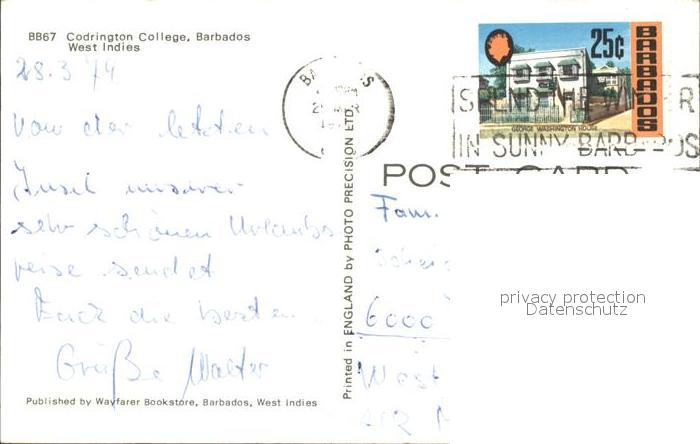 BB67 Codrington College, Barbados
West Indies
28.3.74
Von der letzten
Insel unserer
sehr schönen Urlaubs
reise sendet
Euch die besten
Grüße Walter
Published by Wayfarer Bookstore, Barbados, West Indies
Printed in ENGLAND by PHOTO PRECISION LTD.
25¢
BARBADOS
GEORGE WASHINGTON HOUSE
IN SUNNY BARBADOS
POST CARD
Fam.
6000
West
privacy protection
Datenschutz